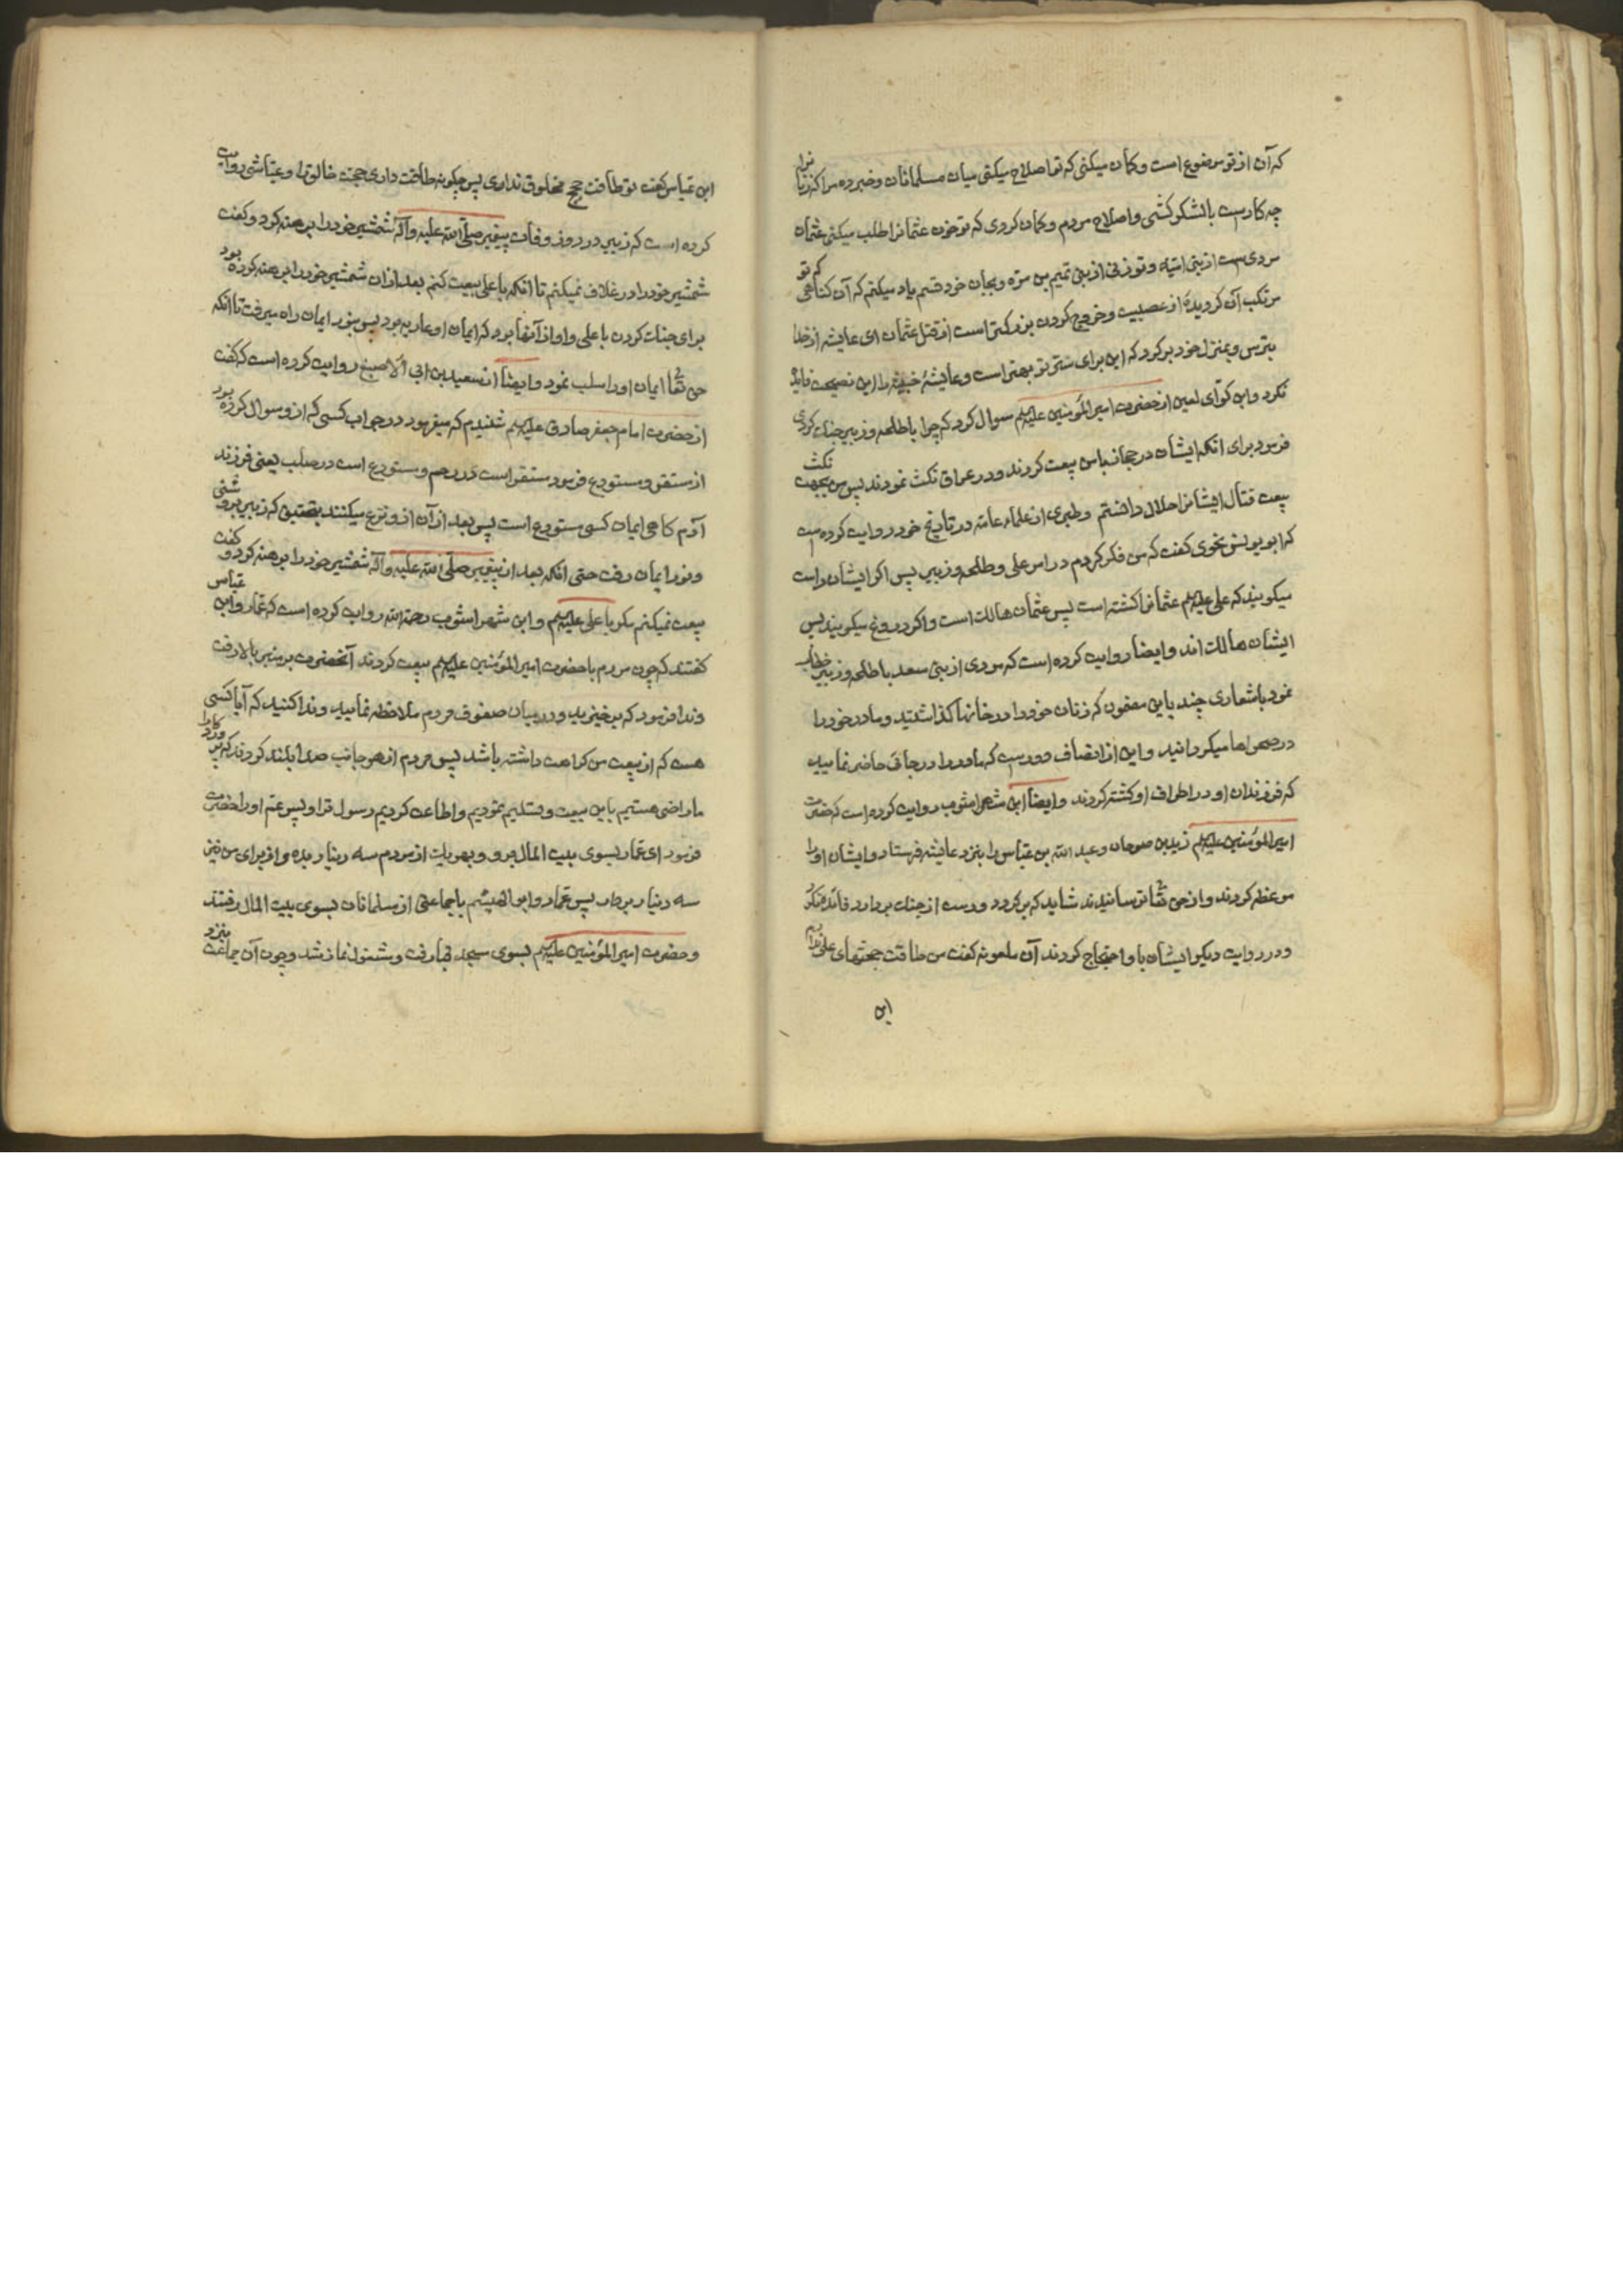 که آن از تو موضوع است و کمان میکنی که تو اصلاح میکنی میان مسلمانان و خبر ده مرا که زنانرا
چه کارست بالشکر کشی و اصلاح مردم و کمان کردی که تو خون عثمانرا طلب میکنی عثمان
مردی ست از بنی امیّه و تو زنی از بنی تمیم بن مرّه و بجان خود قسم یاد میکنم که آن کناهی که تو
مرتکب آن کردیدهٔ از عصبیت و خروج کردن بزرکتر است از قتل عثمان ای عایشه از خدا
بترس و بمنزل خود برکرد که این برای ستر تو بهتر است و عایشهٔ خبیثه را این نصیحت فایده
نکرد و ابن کوّای لعین از حضرت امیر المؤمنین علیه السلم سوال کرد که چرا با طلحه و زبیر جنك کردی
فرمود برای انکه ایشان در حجاز با من بیعت کردند و در عراق نکث نمودند پس من بجهت نکث
بیعت قتال ایشانرا حلال دانستم و طبری از علماء عامّه در تاریخ خود روایت کرده ست
که ابو یونس نحوی کفت که من فکر کردم در امر علی و طلحه و زبیر پس اکر ایشان راست
میکویند که علی علیه السلم عثمانرا کشته است پس عثمان هالك است و اکر دروغ میکویند پس
ایشان هالك اند و ایضا روایت کرده است که مردی از بنی سعد با طلحه و زبیر خطاب
نمود باشعاری چند باین مضمون که زنان خود را در خانها کذاشتید و مادر خود را
در صحراها میکردانید و این از انصاف دورست که مادر را در جائی حاضر نمایید
که فرزندان او در اطراف او کشته کردند و ایضا ابن شهر اشوب روایت کرده است که حضرت
امیر المؤمنین علیه السلم زید بن صوحان و عبد الله بن عباس را بنزد عایشه فرستاد و ایشان او را
موعظه کردند و از حق تعا ترسانیدند شاید که برکردد و دست از جنك بردارد فائده نکرد
و در روایت دیکر ایشان با او احتجاج کردند آن ملعونه کفت من طاقت حجتهای علی ندارم
ابن
ابن عباس کفت تو طاقت حجج مخلوق نداری پس چکونه طاقت داری حجت خالق را و عیّاشی روایت
کرده است که زبیر در روز وفات پیغمبر صلّی الله علیه و آله شمشیر خود را برهنه کرد و کفت
شمشیر خود را در غلاف نمیکنم تا انکه با علی بیعت کنم بعد از ان شمشیر خود را برهنه کرده بود
برای جنك کردن با علی و او از آنها بود که ایمان او عاریه بود پس بنور ایمان راه میرفت تا انکه
حق تعا ایمان او را سلب نمود و ایضا از سعید بن ابی الاصبغ روایت کرده است که کفت
از حضرت امام جعفر صادق علیه السلم شنیدم که میفرمود در جواب کسی که از و سوال کرده بود
از مستقر و مستودع فرمود مستقر است در رحم و مستودع است در صلب یعنی فرزند
آدم کاهی ایمان کسی مستودع است پس بعد از آن از و نزع میکنند بتحقیق که زبیر در روشنی
و نور ایمان رفت حتی انکه بعد از پیغمبر صلّی الله علیه و آله شمشیر خود را برهنه کرد و کفت
بیعت نمیکنم مکر با علی علیه السلم و ابن شهر اشوب رحمه الله روایت کرده است که عمار و ابن عباس
کفتند که چون مردم با حضرت امیر المؤمنین علیه السلم بیعت کردند آنحضرت بر منبر بالا رفت
و ندا فرمود که برخیزید و در میان صفوف مردم ملاحظه نمایید و ندا کنید که آیا کسی
هست که از بیعت من کراهت داشته باشد پس مردم از هر جانب صدا بلند کردند که
ما راضی هستیم باین بیعت و تسلیم نمودیم و اطاعت کردیم رسول ترا و پسر عم او را حضرت
فرمود ای عمار بسوی بیت المال برو و بهر یك از مردم سه دینار بده و از برای من نیز
سه دینار بردار پس عمار و ابو الهیثم با جماعتی از مسلمانان بسوی بیت المال رفتند
و حضرت امیر المؤمنین علیه السلم بسوی مسجد قبا رفت و مشغول نماز شد و چون آن جماعت بنزد